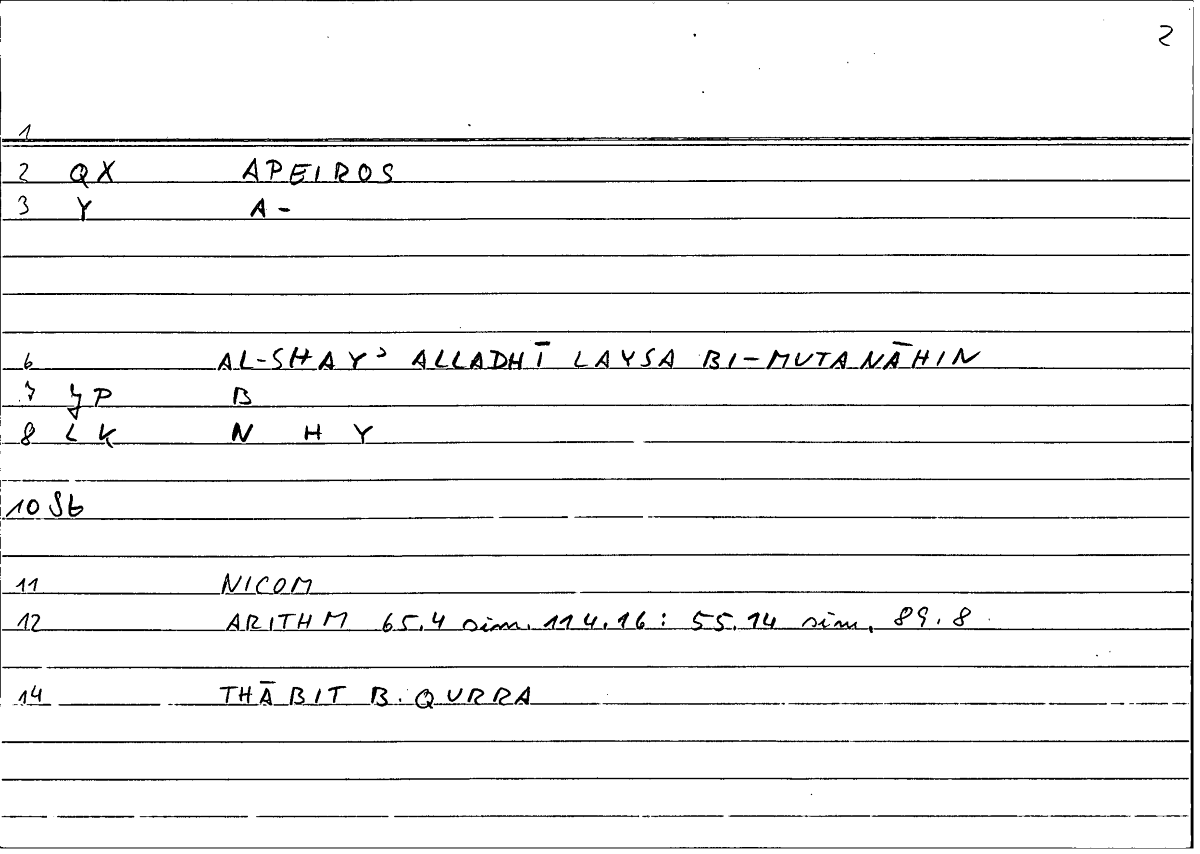 2
1
2 QX APEIROS
3 Y A-
6 AL-SHAYʾ ALLADHĪ LAYSA BI-MUTANĀHIN
7 P B
8 LK N H Y
10 St
11 NICOM
12 ARITHM 65.4 sim. 114.16 : 55.14 sim. 89.8
14 THĀBIT B. QURRA